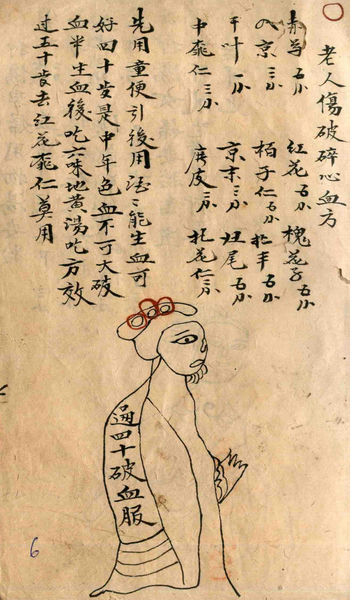 老人傷破碎心血方
赤芍五分 紅花五分 槐花子五分
京三分 柏子仁五分
千叶一分 京末三分 归尾五分
中桃仁三分 皮三分 花仁三分
先用童便引後用酒能生血可
好四十岁是中年色血不可大破
血半生血後吃六味地黄湯吃方效
过五十岁去红花桃仁莫用
過四十破血服
6